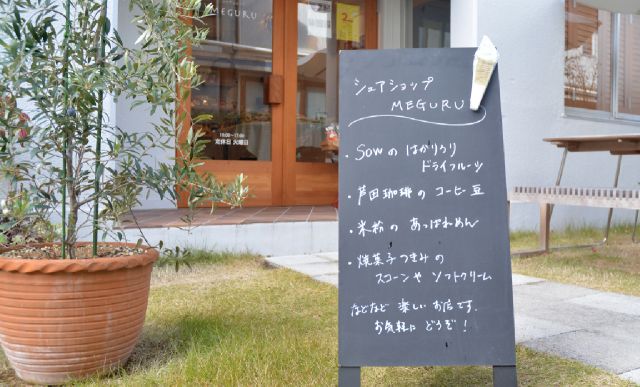 MEGURU
2
10:00〜17:00
定休日 火曜日
シェアショップ
MEGURU
・SOWの はかりうり
ドライフルーツ
・芦田珈琲の コーヒー豆
・米粉の あっぱれめん
・焼菓子つきみの
スコーンや ソフトクリーム
などなど 楽しい お店です.
お気軽に どうぞ!